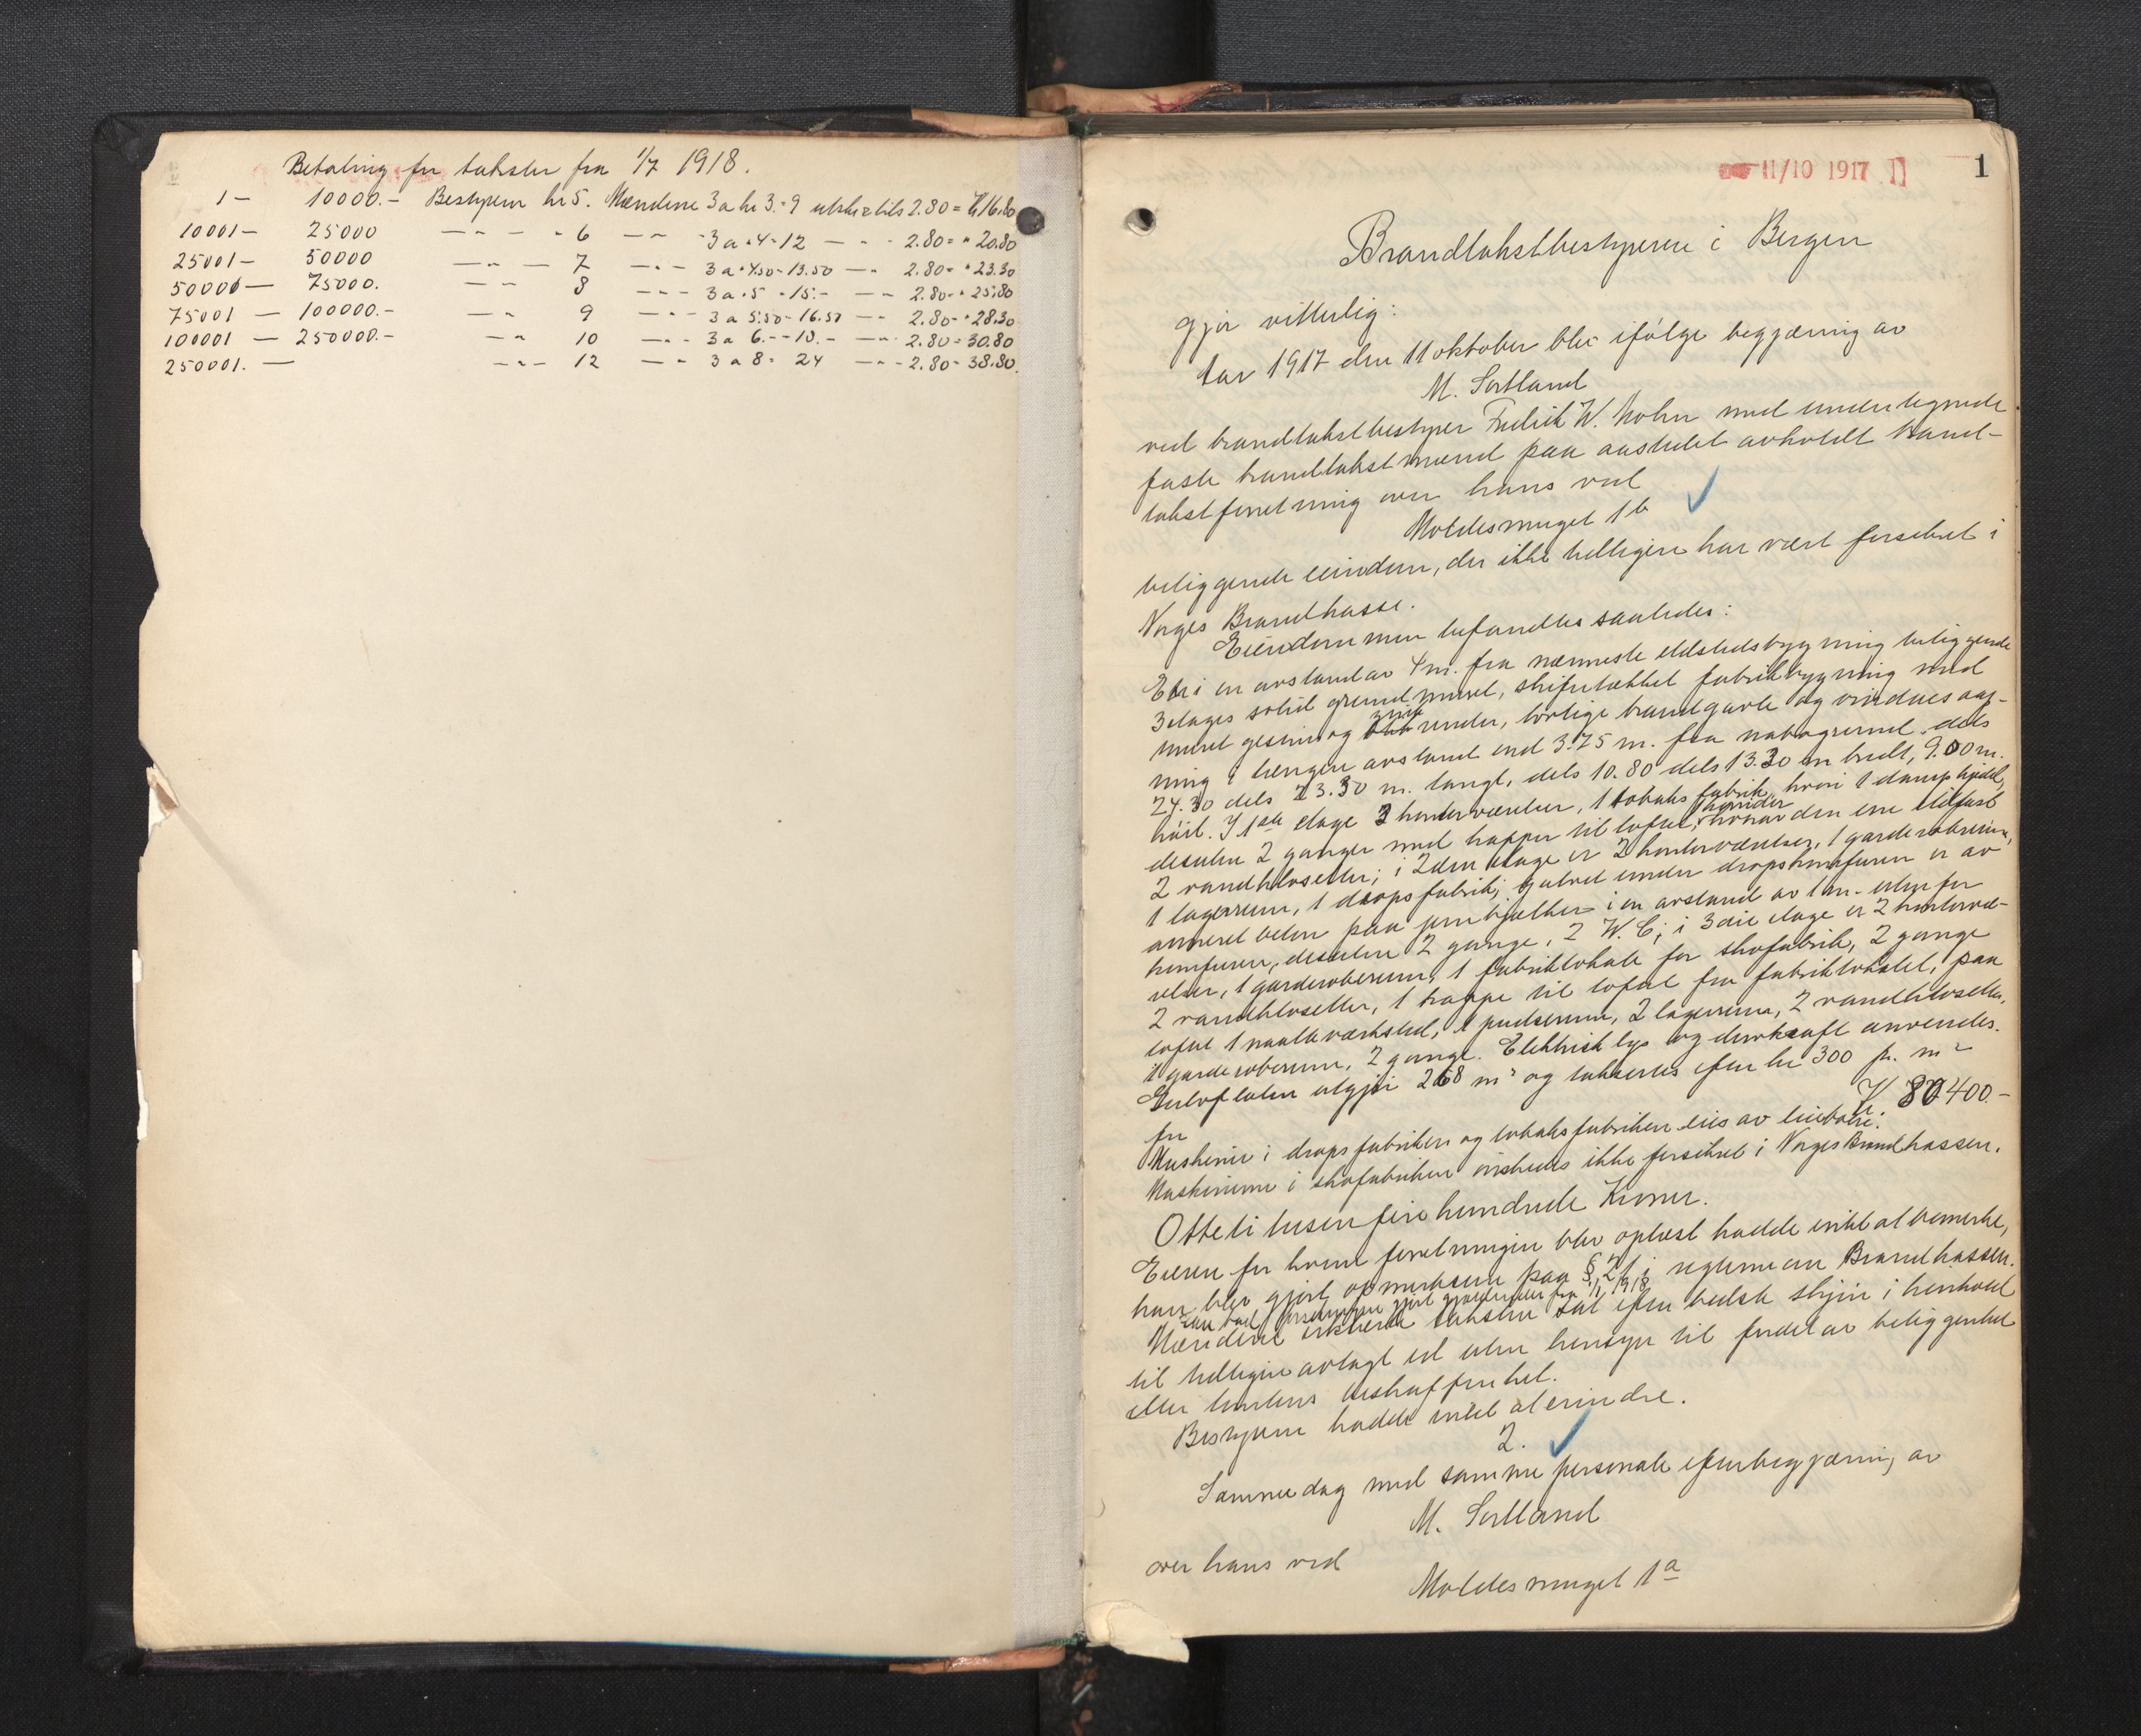 Betaling for takster fra 1/7 1918.
1 - 10000.- Bestyrer kr 5. Mændene 3 a kr 3.- 9 utskr & tils 2.80 = Kr 16.80
10001 - 25000 -"- " 6 -"- 3 a " 4 - 12 -"- 2.80 = " 20.80
25001 - 50000 -"- 7 -"- 3 a " 4.50 - 13.50 -"- 2.80 = " 23.30
50000 - 75000. -"- 8 -"- 3 a " 5 - 15.- -"- 2.80 - " 25.80
75001 - 100000.- -"- 9 -"- 3 a 5.50 - 16.50 -"- 2.80 - " 28.30
100001 - 250000.- -"- 10 -"- 3 a 6.- - 18.- -"- 2.80 = 30.80
250001. - -"- 12 -"- 3 a 8 = 24 -"- 2.80 - 38.80
11/10 1917 1
Brandtakstbestyreren i Bergen
gjør vitterlig:
Aar 1917 den 11 oktober blev ifølge begjæring av
M. Sortland
ved brandtakstbestyrer Fredrik W. Mohn med undertegnede
faste brandtakstmænd paa aastedet avholdt brand-
takstforretning over hans ved
Moldesmuget 1 b
beliggende eiendom, der ikke tidligere har vært forsikret i
Norges Brandkasse.
Eiendommen befandtes saaledes:
Et i en avstand av 4 m. fra nærmeste ildstedsbygning beliggende
3 etages solid grundmuret, skifertækket fabrikbygning med
muret gesims og zink render, lovlige brandgavle og vinduesaap-
ning i længere avstand end 3.75 m. fra nabogrund, dels
24.30 dels 23.30 m. langt, dels 10.80 dels 13.20 m bredt, 9.00 m.
høit. I 1ste etage 3 kontorværelser, 1 tobaksfabrik, hvori 1 dampkjedel,
desuten 2 ganger med trapper til loftet, hvorav den ene ildfast
2 vandklosetter; i 2den etage er 2 kontorværelser, 1 garderoberum,
1 lagerrum, 1 dropsfabrik, gulvet under dropskomfuren er av
armeret beton paa jernbjælker i en avstand av 1 m. utenfor
komfuren, desuten 2 gange, 2 W. C; i 3die etage er 2 kontorvæ-
relser, 1 garderoberum, 1 fabriklokale for skofabrik, 2 gange
2 vandklosetter, 1 trappe til loftet fra fabriklokalet, paa
loftet 1 naatleværksted, 1 pudserum, 2 lagerrum, 2 vandklosetter,
1 garderoberum, 2 gange. Elektrisk lys og drivkraft anvendes.
Gulvflaten utgjør 268 m² og takseres efter kr 300 pr. m²
for Kr. 80400.-
Maskiner i dropsfabriken og tobaksfabriken eies av leieboere.
Maskinerne i skofabriken ønskedes ikke forsikret i Norges Brandkassen.
Otteti tusen fire hundrede Kroner.
Eieren for hvem forretningen blev oplæst hadde intet at bemerke,
han blev gjort opmerksom paa § 21 i reglerne om Brandkassen.
den bad forsikringen gjort gjældende fra 1/1 1918
Mændene erklærte taksten sat efter bedste skjøn i henhold
til tidligere avlagt ed uten hensyn til fordel av beliggenhet
eller tomtens beskaffenhet.
Bestyreren hadde intet at erindre.
2.
Samme dag med samme personale efter begjæring av
M. Sortland
over hans ved
Moldesmuget 1 a